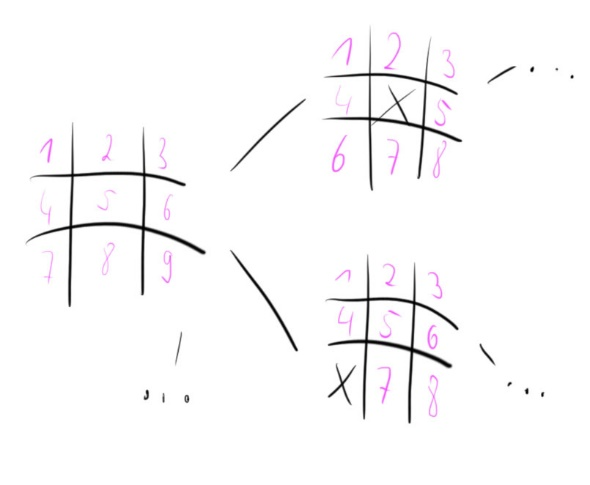 1 2 3
4 X 5
6 7 8
1 2 3
4 5 6
7 8 9
1 2 3
4 5 6
X 7 8